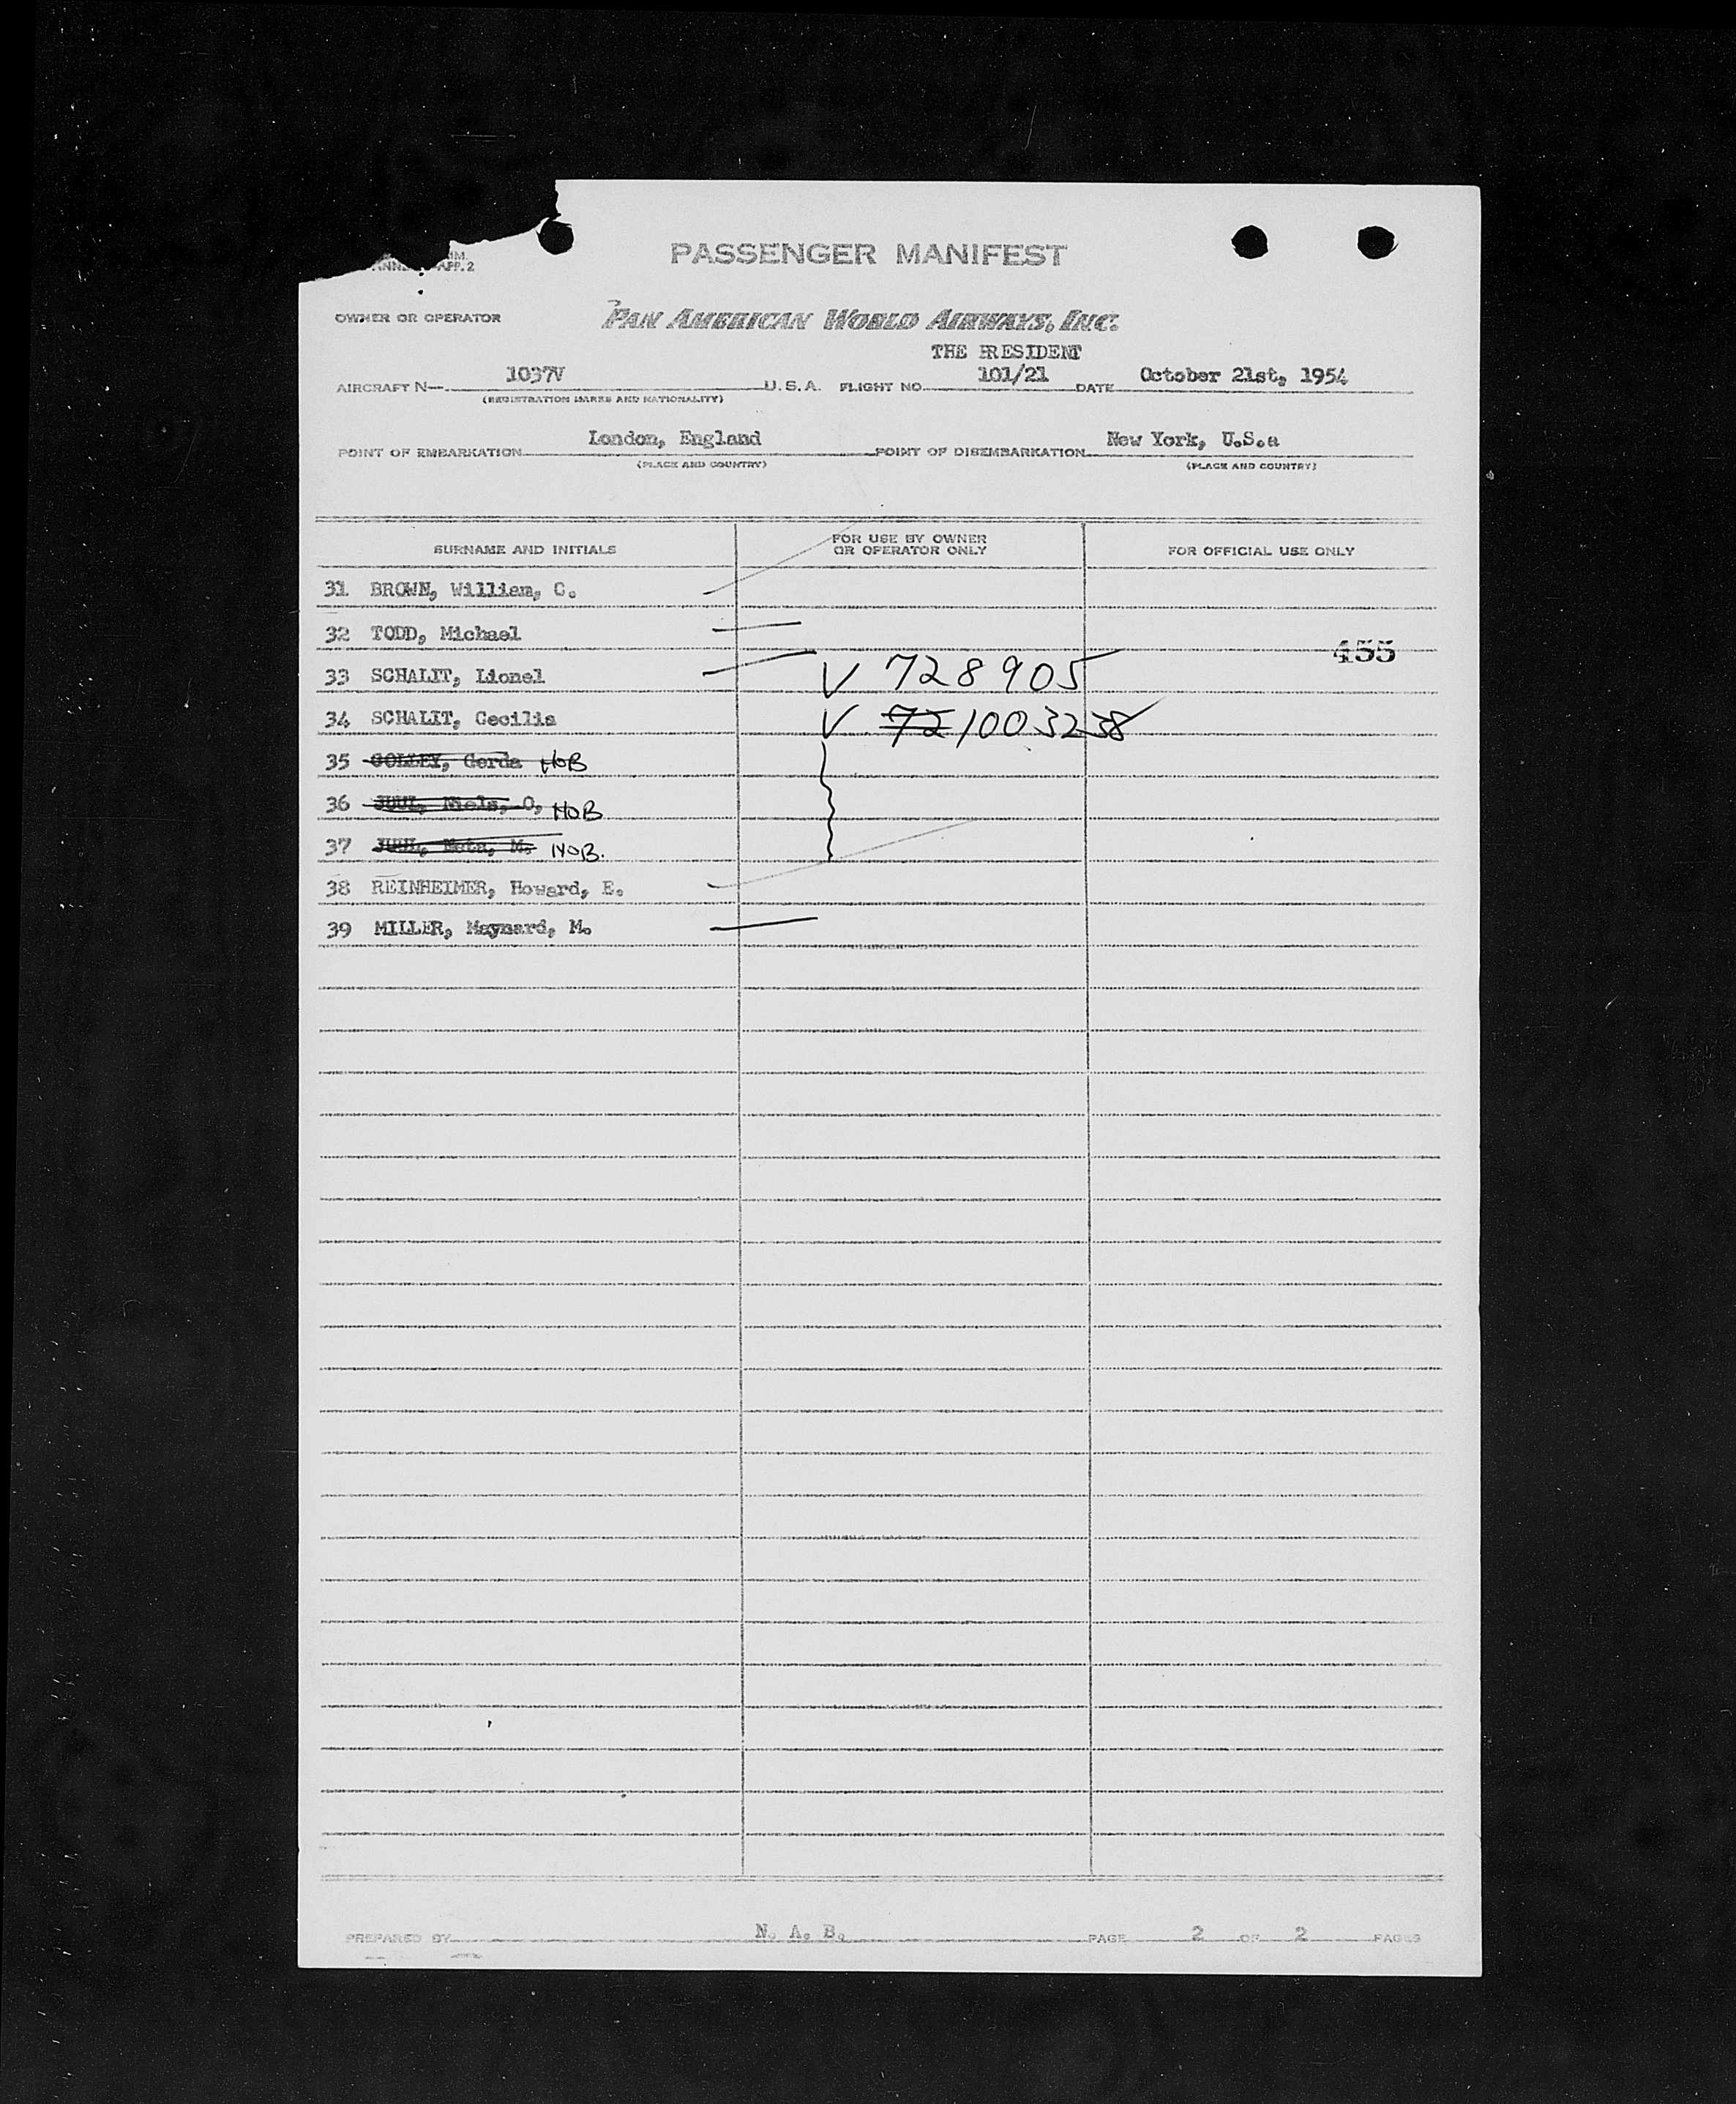 APP. 2
PASSENGER MANIFEST
OWNER OR OPERATOR PAN AMERICAN WORLD AIRWAYS, INC.
THE PRESIDENT
AIRCRAFT N— 1037V U.S.A. FLIGHT NO. 101/21 DATE October 21st, 1954
(REGISTRATION MARKS AND NATIONALITY)
POINT OF EMBARKATION London, England POINT OF DISEMBARKATION New York, U.S.a
(PLACE AND COUNTRY) (PLACE AND COUNTRY)
SURNAME AND INITIALS FOR USE BY OWNER OR OPERATOR ONLY FOR OFFICIAL USE ONLY
31 BROWN, William, C.
32 TODD, Michael
455
33 SCHALIT, Lionel V 728905
34 SCHALIT, Cecilia V 72 1003238
35 GOLLEY, Gerda NOB
36 JUUL, Niels, O, NOB
37 JUUL, Meta, M. NOB.
38 REINHEIMER, Howard, E.
39 MILLER, Maynard, M.
PREPARED BY N. A. B. PAGE 2 OF 2 PAGES